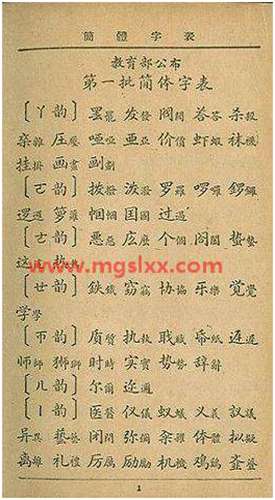 簡體字表
教育部公布
第一批简体字表
〔ㄚ韵〕罢罷 发發 阀閥 荅答 杀殺
杂雜 压壓 哑啞 亚亞 价價 虾蝦 袜襪
挂掛 画畫 划劃
〔ㄛ韵〕拨撥 泼潑 罗羅 啰囉 锣鑼
逻邏 箩籮 帼幗 国國 过過
〔ㄜ韵〕恶惡 庅麼 个個 阁閣 蛰蟄
这這 热熱
www.mgslxx.com
〔ㄝ韵〕鉄鐵 窃竊 协協 乐樂 觉覺
学學
〔ㄭ韵〕质質 执執 职職 帋紙 迟遲
师師 狮獅 时時 实實 势勢 辞辭
〔ㄦ韵〕尔爾 迩邇
〔ㄧ韵〕医醫 仪儀 蚁蟻 义義 议議
异異 艺藝 闭閉 弥彌 籴糴 体體 拟擬
离離 礼禮 厉厲 励勵 机機 鸡鷄
1